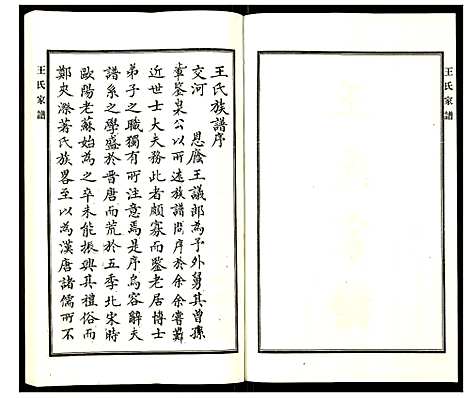 王氏家譜
王氏族譜序
交河 恩廕王議郎為予外舅其曾孫
鑒泉公以所
族譜問序於余余嘗
近世士大夫務此者頗寡而鑒老居博士
弟子之職獨有所注意焉是序烏容辭夫
譜系之學盛於晉唐而荒於五季北宋時
歐陽老蘇始為之卒未能振興其禮俗而
鄭夾漈著氏族畧至以為漢唐諸儒所不
王氏家譜